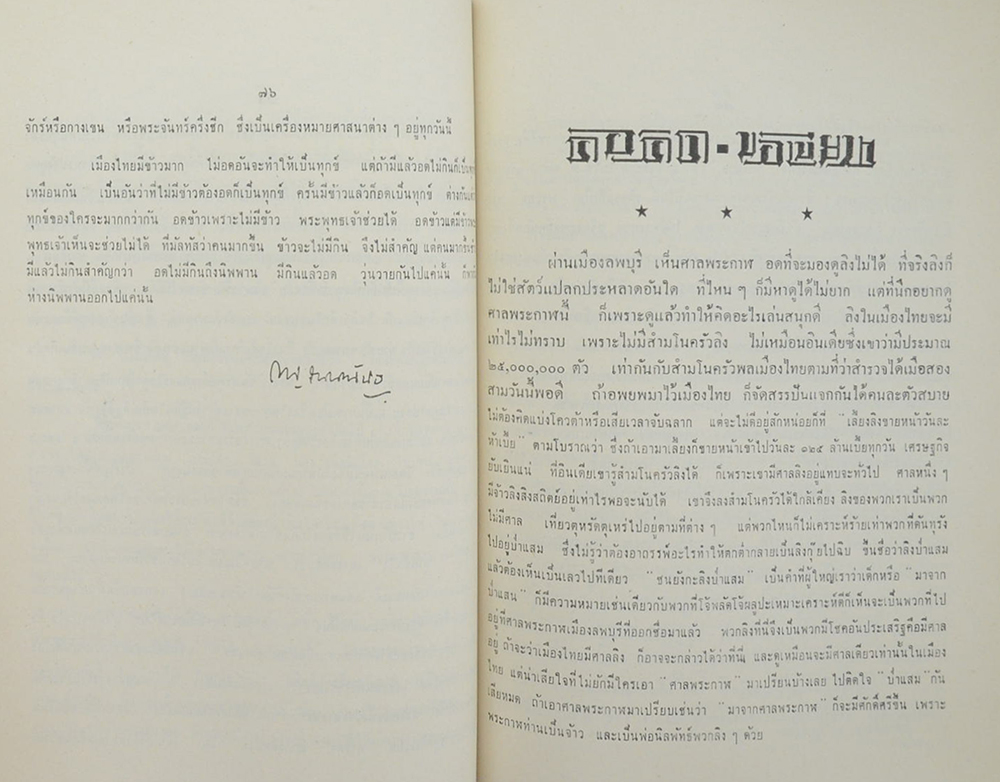 ๗๖
จักร์หรือกางเขน หรือพระจันทร์ครึ่งซีก ซึ่งเป็นเครื่องหมายศาสนาต่าง ๆ อยู่ทุกวันนี้
เมืองไทยมีข้าวมาก ไม่อดอันจะทำให้เป็นทุกข์ แต่ถ้ามีแล้วอดไม่กินก็เป็นทุกข์
เหมือนกัน เป็นอันว่าที่ไม่มีข้าวต้องอดก็เป็นทุกข์ ครั้นมีข้าวแล้วก็อดเป็นทุกข์ ต่างกันแต่
ทุกข์ของใครจะมากกว่ากัน อดข้าวเพราะไม่มีข้าว พระพุทธเจ้าช่วยได้ อดข้าวแต่มีข้าว
พุทธเจ้าเห็นจะช่วยไม่ได้ ที่มัลทัสว่าคนมากขึ้น ข้าวจะไม่มีกิน จึงไม่สำคัญ แต่คนมาก
มีแล้วไม่กินสำคัญกว่า อดไม่มีกินถึงนิพพาน มีกินแล้วอด วุ่นวายกันไปแค่นั้น
ห่างนิพพานออกไปแค่นั้น
คยคิด - ขอเขียน
★ ★ ★
ผ่านเมืองลพบุรี เห็นศาลพระกาฬ อดที่จะมองดูลิงไม่ได้ ที่จริงลิงก็
ไม่ใช่สัตว์แปลกประหลาดอันใด ที่ไหน ๆ ก็มีหาดูได้ไม่ยาก แต่ที่นึกอยากดู
ศาลพระกาฬนี้ ก็เพราะดูแล้วทำให้คิดอะไรเล่นสนุกดี ลิงในเมืองไทยจะมี
เท่าไรไม่ทราบ เพราะไม่มีสำมโนครัวลิง ไม่เหมือนอินเดียซึ่งเขาว่ามีประมาณ
๒๕,๐๐๐,๐๐๐ ตัว เท่ากันกับสำมโนครัวพลเมืองไทยตามที่ว่าสำรวจได้เมื่อสอง
สามวันนี้พอดี ถ้าอพยพมาไว้เมืองไทย ก็จัดสรรปันแจกกันได้คนละตัวสบาย
ไม่ต้องคิดแบ่งโควต้าหรือเสียเวลาจับฉลาก แต่จะไม่ดีอยู่สักหน่อยก็ที่ "เลี้ยงลิงขายหน้าวันละ
ห้าเบี้ย" ตามโบราณว่า ซึ่งถ้าเอามาเลี้ยงก็ขายหน้าเข้าไปวันละ ๑๒๕ ล้านเบี้ยทุกวัน เศรษฐกิจ
ยับเยินแน่ ที่อินเดียเขารู้สำมโนครัวลิงได้ ก็เพราะเขามีศาลลิงอยู่แทบจะทั่วไป ศาลหนึ่ง ๆ
มีจ้าวลิงสิงสถิตย์อยู่เท่าไรพอจะนับได้ เขาจึงลงสำมโนครัวได้ใกล้เคียง ลิงของพวกเราเป็นพวก
ไม่มีศาล เที่ยวตุหรัดตุเหร่ไปอยู่ตามที่ต่าง ๆ แต่พวกไหนก็ไม่เคราะห์ร้ายเท่าพวกที่ดันทุรัง
ไปอยู่ป่าแสม ซึ่งไม่รู้ว่าต้องอาถรรพ์อะไรทำให้ตกต่ำกลายเป็นลิงกุ๊ยไปฉิบ ขึ้นชื่อว่าลิงป่าแสม
แล้วต้องเห็นเป็นเลวไปทีเดียว "ซนยังกะลิงป่าแสม" เป็นคำที่ผู้ใหญ่เราว่าเด็กหรือ "มาจาก
ป่าแสม" ก็มีความหมายเช่นเดียวกับพวกที่โจ้พลัดโจ้ผลูปะเหมาะเคราะห์ดีก็เห็นจะเป็นพวกที่ไป
อยู่ที่ศาลพระกาฬเมืองลพบุรีที่ออกชื่อมาแล้ว พวกลิงที่นี่จึงเป็นพวกมีโชคอันประเสริฐคือมีศาล
อยู่ ถ้าจะว่าเมืองไทยมีศาลลิง ก็อาจจะกล่าวได้ว่าที่นี่ และดูเหมือนจะมีศาลเดียวเท่านั้นในเมือง
ไทย แต่น่าเสียใจที่ไม่ยักมีใครเอา "ศาลพระกาฬ" มาเปรียบบ้างเลย ไปติดใจ "ป่าแสม" กัน
เสียหมด ถ้าเอาศาลพระกาฬมาเปรียบเช่นว่า "มาจากศาลพระกาฬ" ก็จะมีศักดิ์ศรีขึ้น เพราะ
พระกาฬท่านเป็นจ้าว และเป็นพ่อนิลพัทธ์พวกลิง ๆ ด้วย